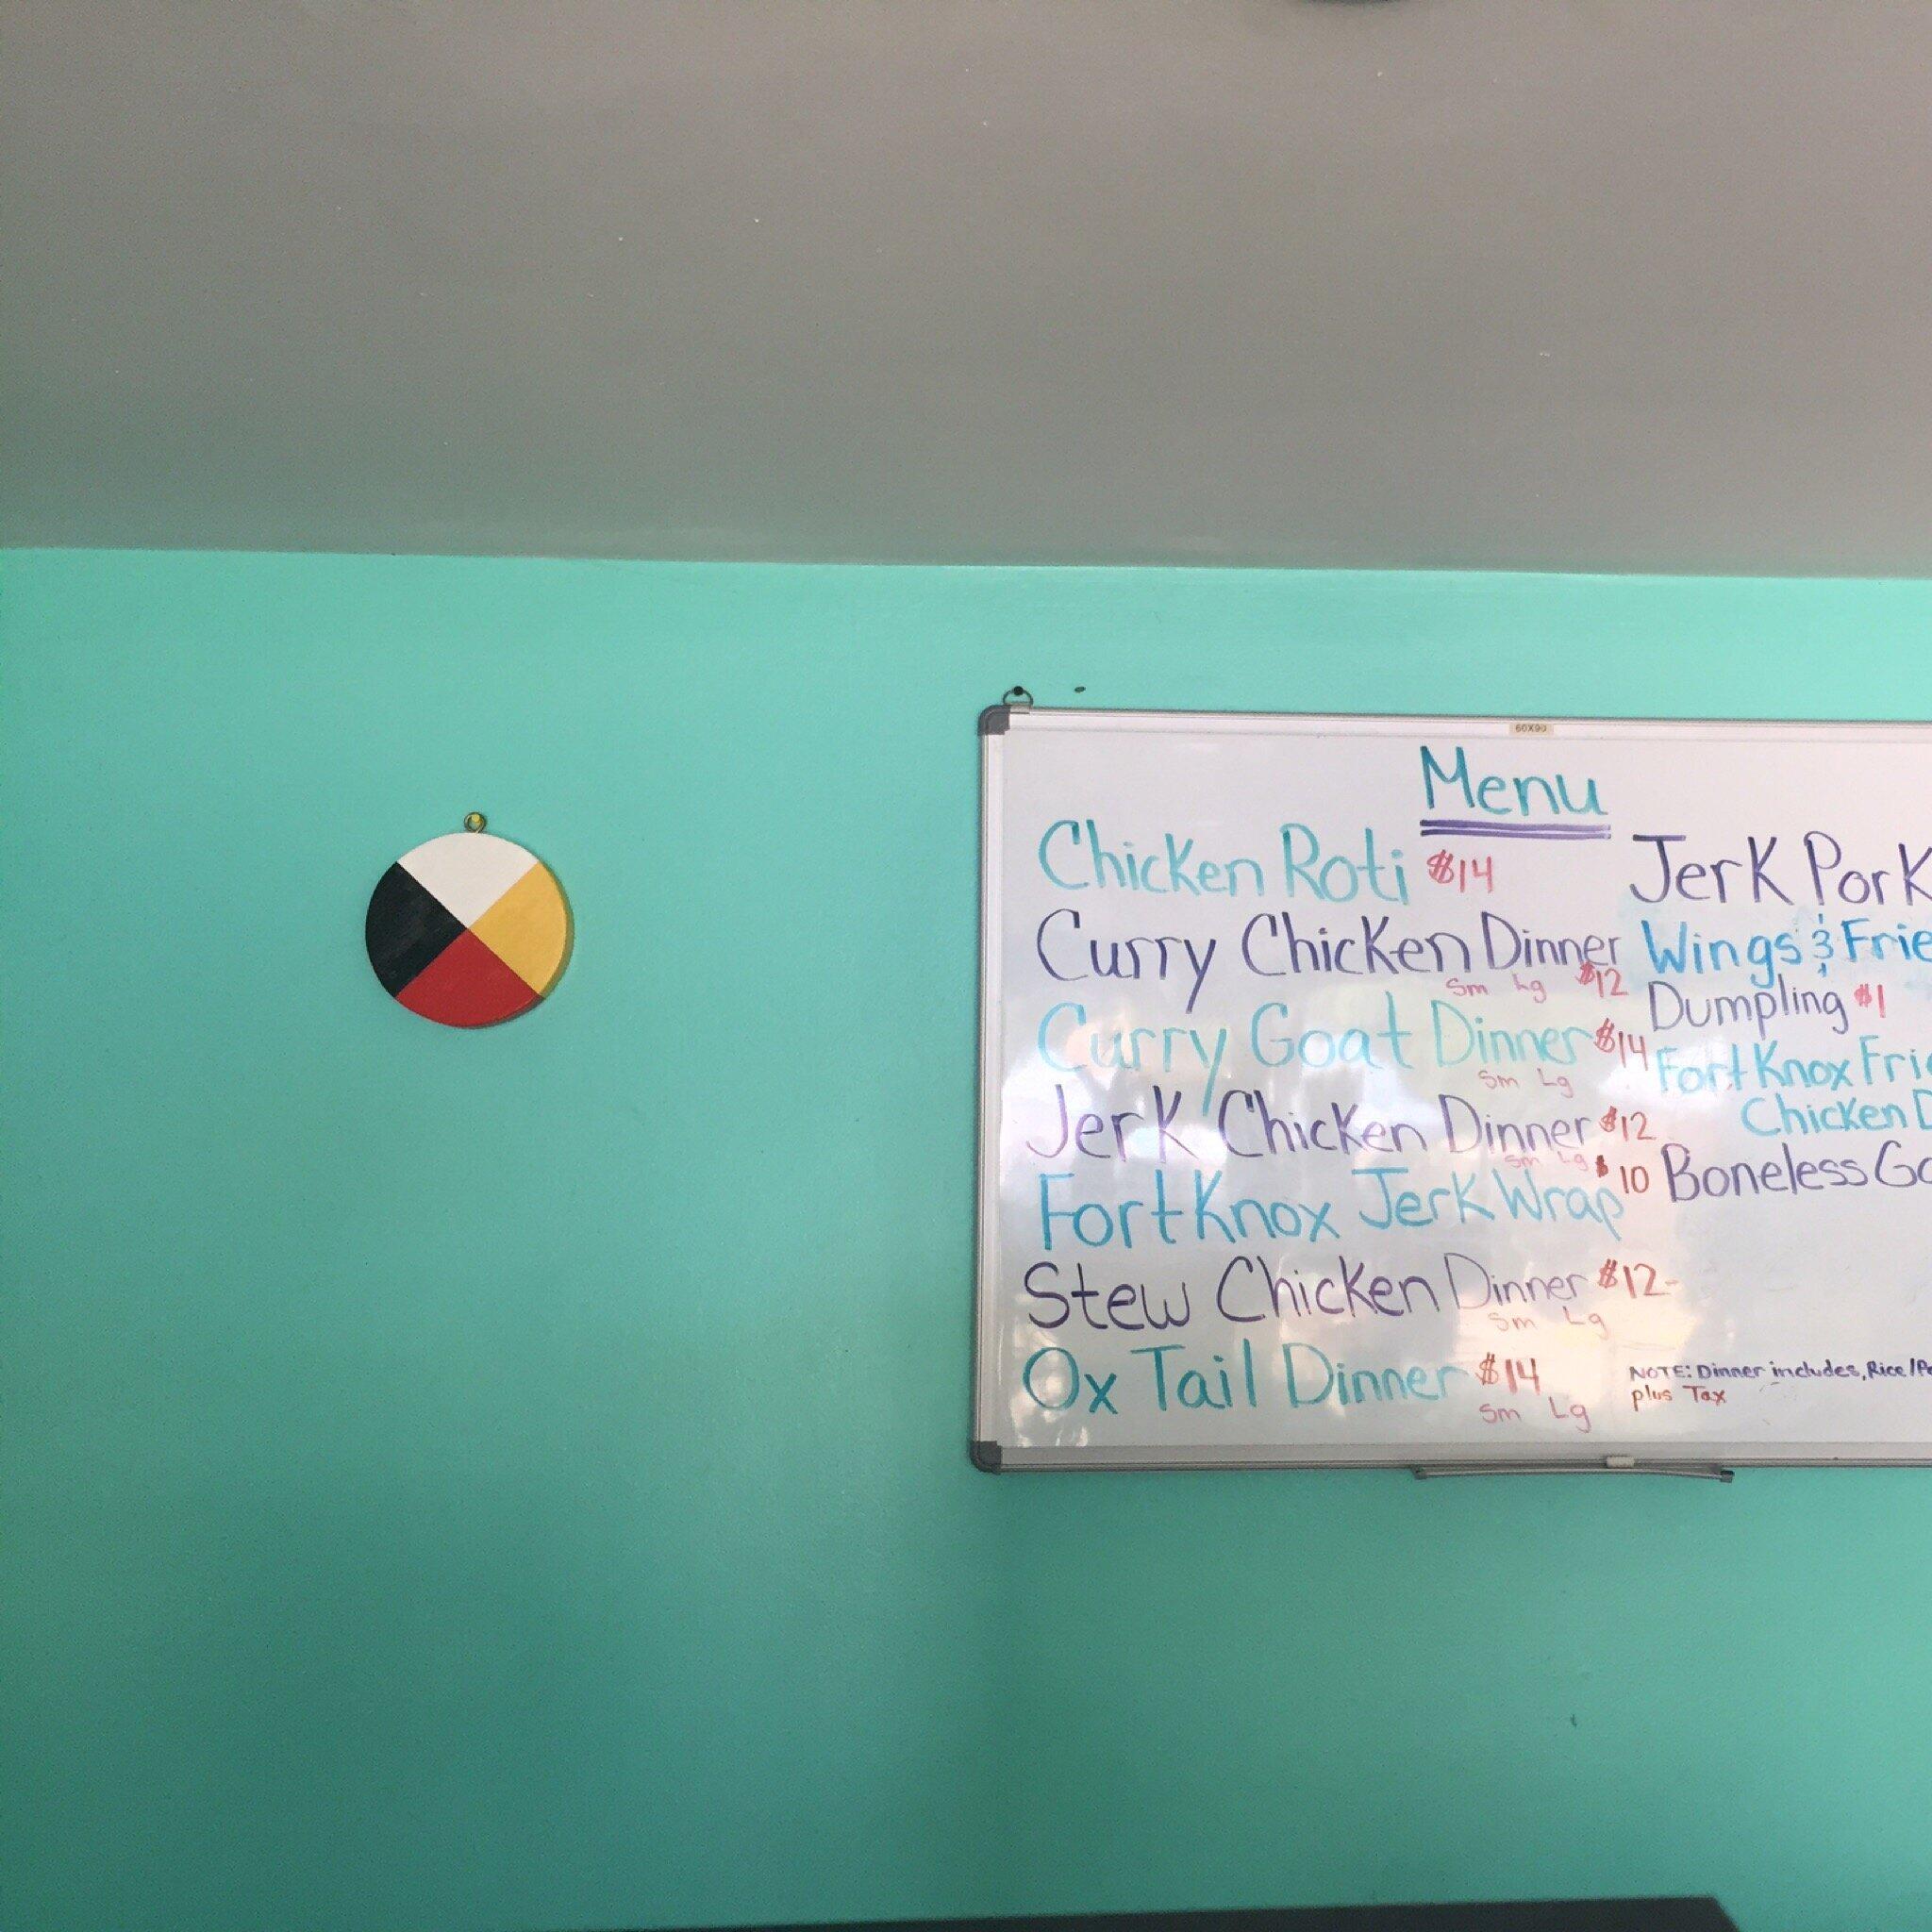 60X90
Menu
Chicken Roti $14
Curry Chicken Dinner
Sm Lg $12
Curry Goat Dinner $14
Sm Lg
Jerk Chicken Dinner $12
Sm Lg
Fort Knox Jerk Wrap $10
Stew Chicken Dinner $12-
Sm Lg
Ox Tail Dinner $14
Sm Lg
Jerk Pork
Wings & Frie
Dumpling $1
Fort Knox Frie
Chicken D
Boneless Go
NOTE: Dinner includes, Rice/Pe
plus Tax